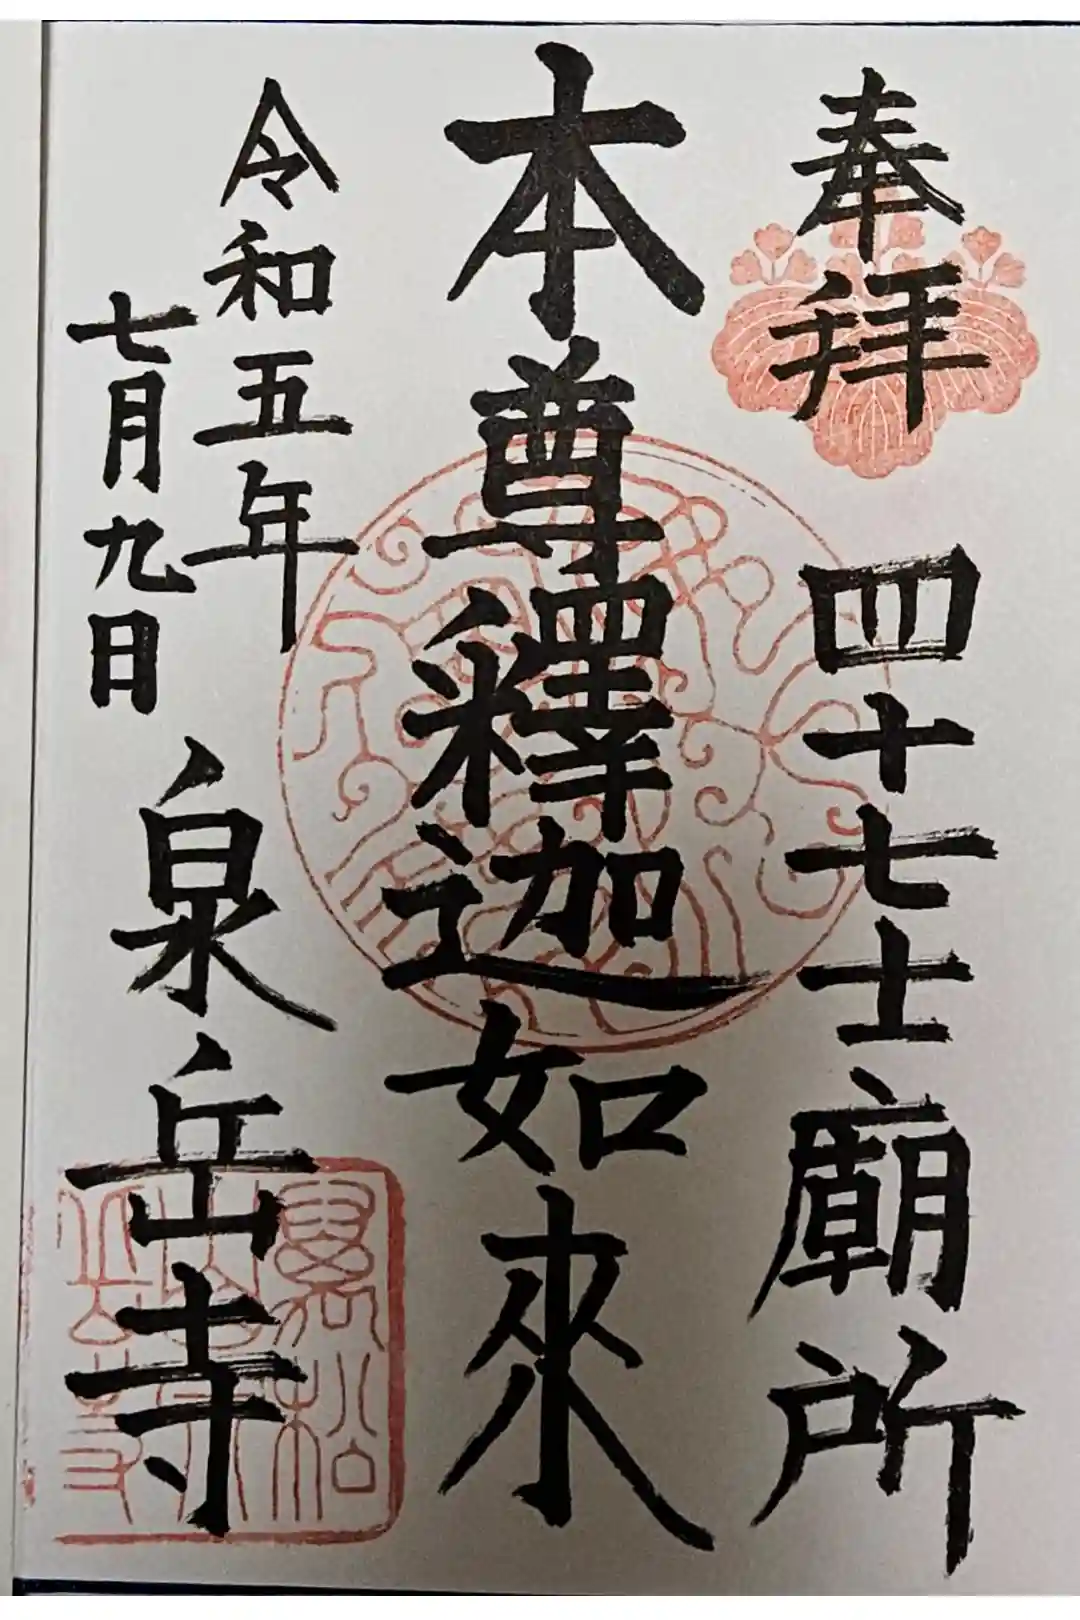 奉拝
四十七士廟所
本尊釋迦如來
令和五年
七月九日
泉岳寺